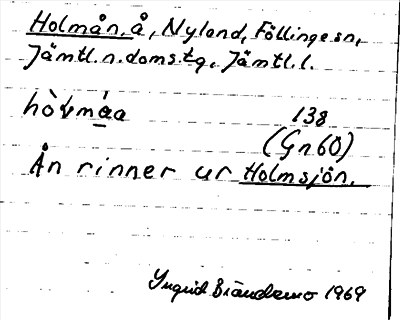 Holmån, å, Nyland, Föllinge sn,
Jämtl. n. doms. tg. Jämtl. l.
138
(Gn 60)
Ån rinner ur Holmsjön.
Ingrid Brändemo 1969